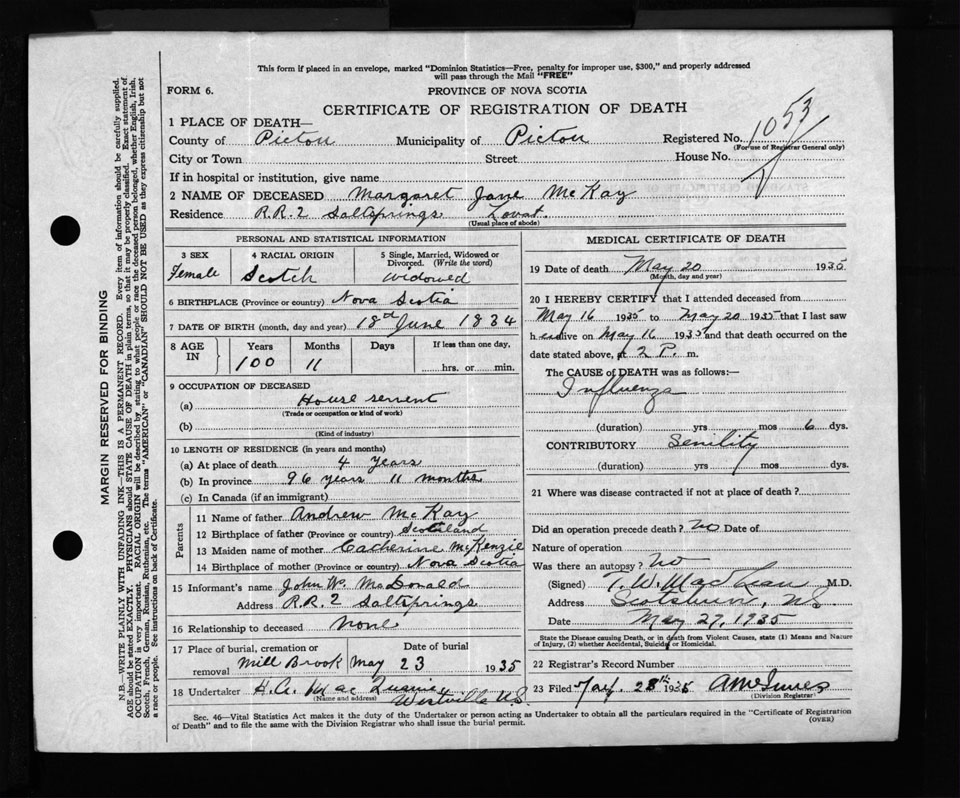 This form if placed in an envelope, marked "Dominion Statistics—Free, penalty for improper use, $300," and properly addressed
will pass through the Mail "FREE"
FORM 6.
PROVINCE OF NOVA SCOTIA
CERTIFICATE OF REGISTRATION OF DEATH
1 PLACE OF DEATH—
County of Pictou Municipality of Pictou Registered No. 1053
(For use of Registrar General only)
City or Town Street House No.
If in hospital or institution, give name
2 NAME OF DECEASED Margaret Jane McKay
Residence R.R.2 Saltsprings Lovat.
(Usual place of abode)
PERSONAL AND STATISTICAL INFORMATION
3 SEX 4 RACIAL ORIGIN 5 Single, Married, Widowed or
Divorced. (Write the word)
Female Scotch widowed
6 BIRTHPLACE (Province or country) Nova Scotia
7 DATE OF BIRTH (month, day and year) 18th June 1834
8 AGE IN Years Months Days If less than one day,
100 11 hrs. or min.
9 OCCUPATION OF DECEASED
(a) House servent
(Trade or occupation or kind of work)
(b)
(Kind of industry)
10 LENGTH OF RESIDENCE (in years and months)
(a) At place of death 4 years
(b) In province 96 years 11 months
(c) In Canada (if an immigrant)
Parents
11 Name of father Andrew McKay
12 Birthplace of father (Province or country) Scotland
13 Maiden name of mother Catherine McKenzie
14 Birthplace of mother (Province or country) Nova Scotia
15 Informant's name John W. MacDonald
Address R.R.2 Saltsprings
16 Relationship to deceased none
17 Place of burial, cremation or Date of burial
removal Mill Brook May 23 1935
18 Undertaker H.A. Mac
(Name and address)
Westville N.S.
MEDICAL CERTIFICATE OF DEATH
19 Date of death May 20 1935
(Month, day and year)
20 I HEREBY CERTIFY that I attended deceased from
May 16 1935 to May 20 1935 that I last saw
h er alive on May 16 1935 and that death occurred on the
date stated above, at 2 P. m.
The CAUSE of DEATH was as follows:—
Influenza
(duration) yrs mos 6 dys.
CONTRIBUTORY Senility
(duration) yrs mos dys.
21 Where was disease contracted if not at place of death?
Did an operation precede death? No Date of
Nature of operation
Was there an autopsy? No
(Signed) T. W. MacLean M.D.
Address Scotsburn, N.S.
Date May 27, 1935
State the Disease causing Death, or in death from Violent Causes, state (1) Means and Nature
of Injury, (2) whether Accidental, Suicidal or Homicidal.
22 Registrar's Record Number
23 Filed May. 28th 1935 A McInnes
(Division Registrar)
Sec. 46—Vital Statistics Act makes it the duty of the Undertaker or person acting as Undertaker to obtain all the particulars required in the "Certificate of Registration
of Death" and to file the same with the Division Registrar who shall issue the burial permit.
(OVER)
MARGIN RESERVED FOR BINDING
N.B.—WRITE PLAINLY WITH UNFADING INK—THIS IS A PERMANENT RECORD. Every item of information should be carefully supplied.
AGE should be stated EXACTLY. PHYSICIANS should STATE CAUSE OF DEATH in plain terms, so that it may be properly classified. Exact statement of
OCCUPATION is very important. RACIAL ORIGIN will be described by stating to what people or race the deceased person belonged, whether English, Irish,
Scotch, French, German, Russian, Ruthenian, etc. The terms "AMERICAN" or "CANADIAN" SHOULD NOT BE USED as they express citizenship but not
a race or people. See instructions on back of Certificate.